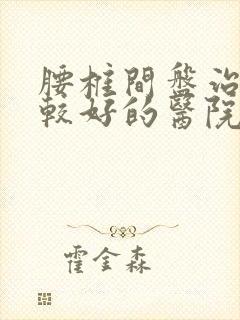 腰椎間盤治
較好的醫院
霍金森